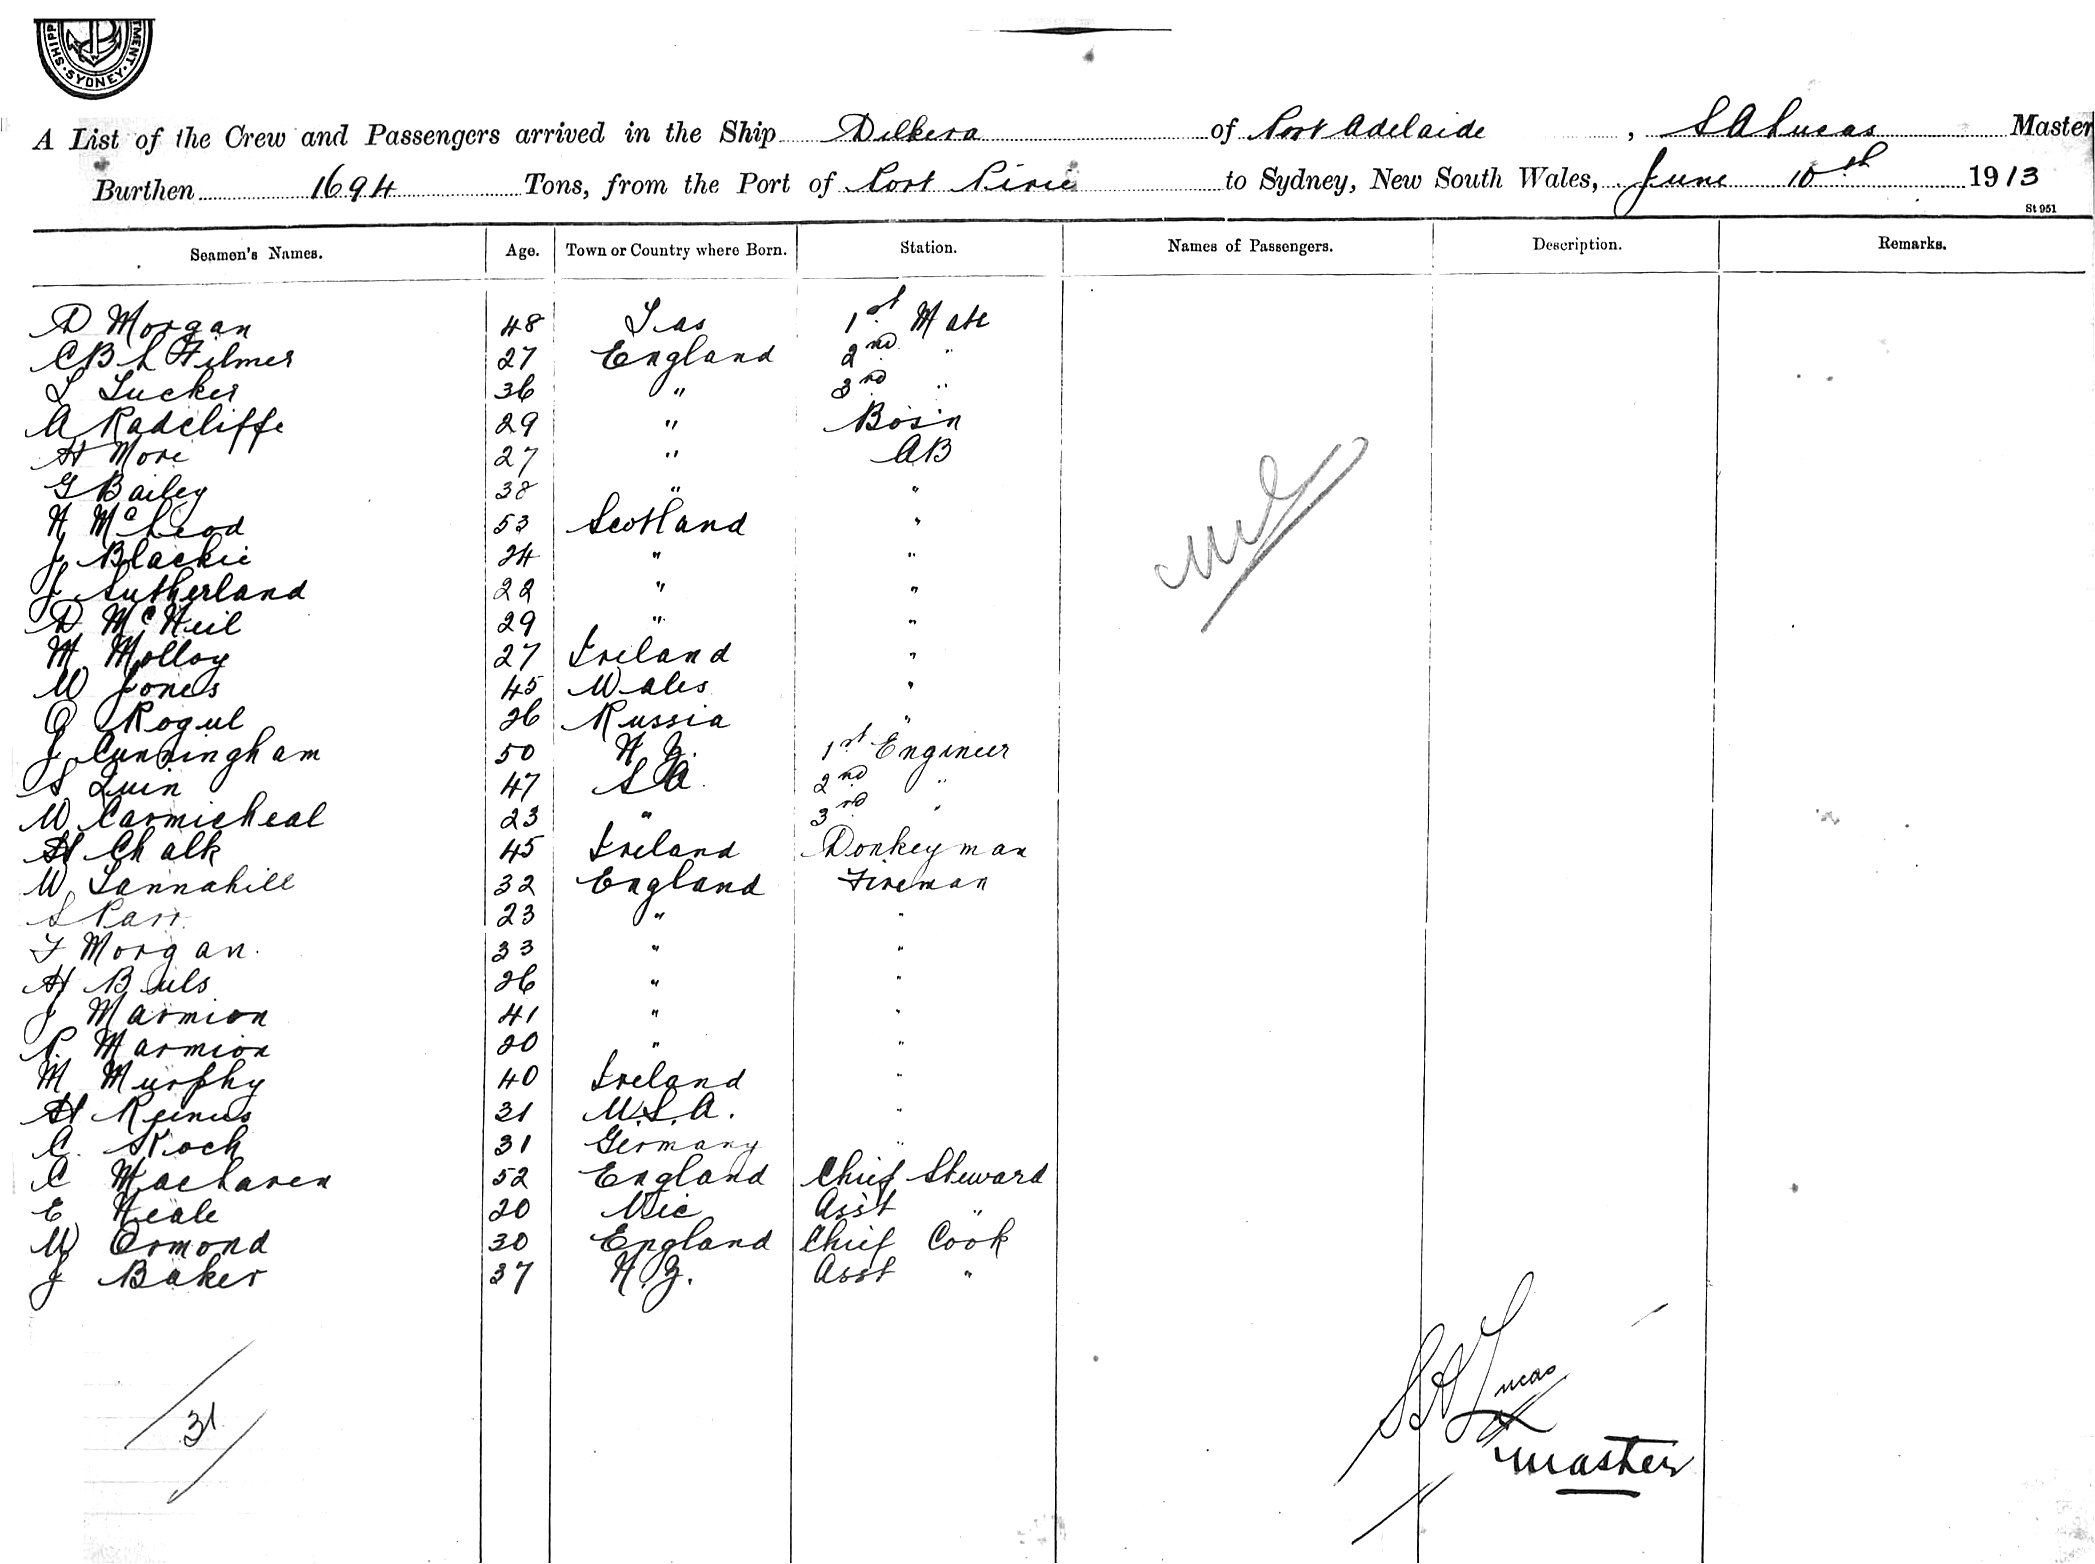 SHIPP
SYDNEY
TMENT
A List of the Crew and Passengers arrived in the Ship Dilkera of Port Adelaide, S A Lucas Master
Burthen 1694 Tons, from the Port of Port Pirie to Sydney, New South Wales, June 10th 1913
St 951
Seamen's Names. Age. Town or Country where Born. Station. Names of Passengers. Description. Remarks.
D Morgan 48 Tas 1st Mate
C B L Filmer 27 England 2nd "
T Tucker 36 " 3rd "
A Radcliffe 29 " Bos'n
H More 27 " AB
G Bailey 38 " "
N McLeod 53 Scotland "
J Blackie 24 " "
J Sutherland 22 " "
D McNeil 29 " "
M Molloy 27 Ireland "
W Jones 45 Wales "
O Rogul 26 Russia "
J Cunningham 50 N.Z. 1st Engineer
S Quin 47 S A. 2nd "
W Carmicheal 23 " 3rd "
H Chalk 45 Ireland Donkeyman
W Tannahill 32 England Fireman
S Parr 23 " "
F Morgan. 33 " "
H Buls 26 " "
J Marmion 41 " "
P. Marmion 20 " "
M Murphy 40 Ireland "
H Reinus 31 U.S.A. "
C. Koch 31 Germany "
C MacLaren 52 England Chief Steward
E Neale 20 Vic Asst "
W Ormond 30 England Chief Cook
J Baker 37 N.Z. Asst "
31
Nil
S A Lucas
Master